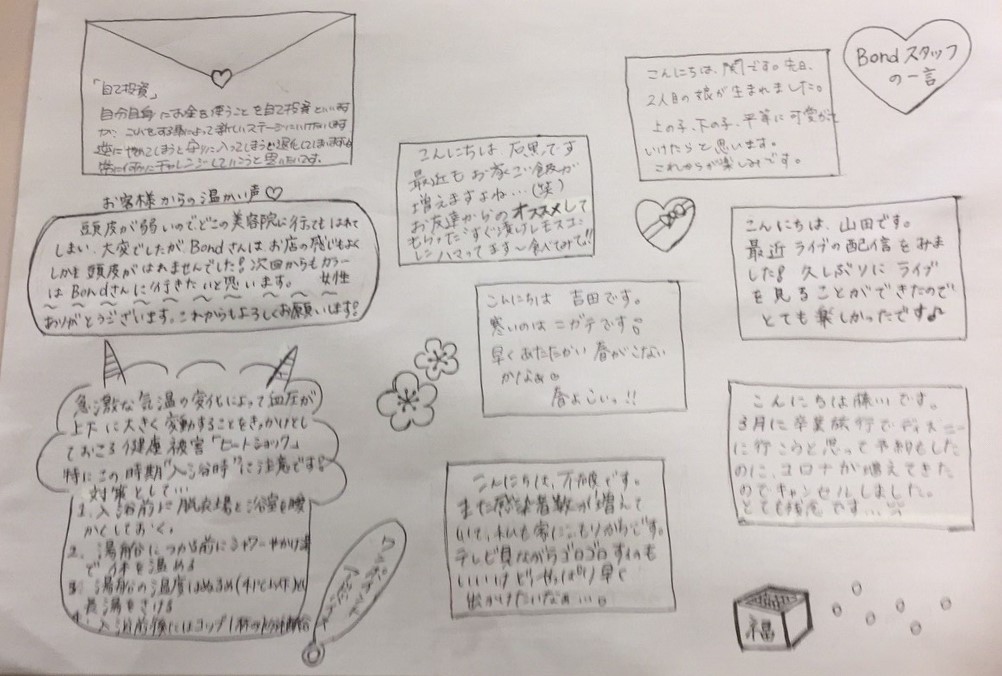 「自己投資」
自分自身にお金を使うことを自己投資といいます
が、これをする事によって新しいステージにいけたりします
逆にやめてしまうと守りに入ってしまうと退化してしまいますので
常に何かにチャレンジしていこうと思います。
お客様からの温かい声♡
頭皮が弱いので、どこの美容院に行ってもはれて
しまい、大変でしたが、Bondさんはお店の感じもよく
しかも頭皮がはれませんでした!次回からもカラー
はBondさんに行きたいと思います。 女性
ありがとうございます。これからもよろしくお願いします!
急激な気温の変化によって血圧が
上下に大きく変動することをきっかけとし
ておこる健康被害「ヒートショック」
特にこの時期"入浴時"に注意です!
対策として…
1、入浴前に脱衣場と浴室を暖
かくしておく。
2、湯船につかる前にシャワーやかけ湯
で体を温める
3、湯船の温度はぬるめ(41℃以下)
長湯をさける
4、入浴前後にはコップ1杯の水分補給
こんにちは 石黒です
最近もお家ご飯が
増えますよね…(笑)
お友達からのオススメして
もらった
ハマってます〜食べてみて!!
こんにちは 吉田です。
寒いのはニガテです
早くあたたかい春がこない
かなぁ。
春よこいっ!!
こんにちは、です。
また感染者数が増えて
いて、私も家にこもりがちです。
テレビ見ながらゴロゴロするのも
いいけど…やっぱり早く
出かけたいなぁ…。
Bondスタッフ
の一言
こんにちは、関です。先日、
2人目の娘が生まれました。
上の子、下の子、平等に可愛がって
いけたらと思います。
これからが楽しみです。
こんにちは、山田です。
最近ライブの配信をみま
した!久しぶりにライブ
を見ることができたので
とても楽しかったです♪
こんにちは です。
3月に卒業旅行でディズニー
に行こうと思って予約もした
のに、コロナが増えてきた
のでキャンセルしました。
とても残念です…
福